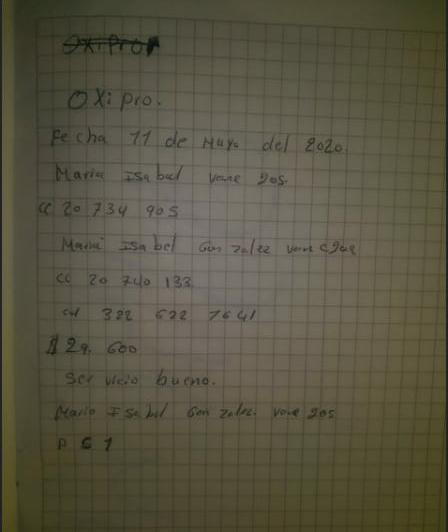 Oxipro.
Fecha 11 de Mayo del 2020.
Maria Isabel vane gos.
cc 20 734 905
Maria Isabel Gonzalez
cc 20 740 133
cel 322 622 7641
$ 29. 600
Servicio bueno.
Mario Isabel Gonzalez. vane gos
P 61